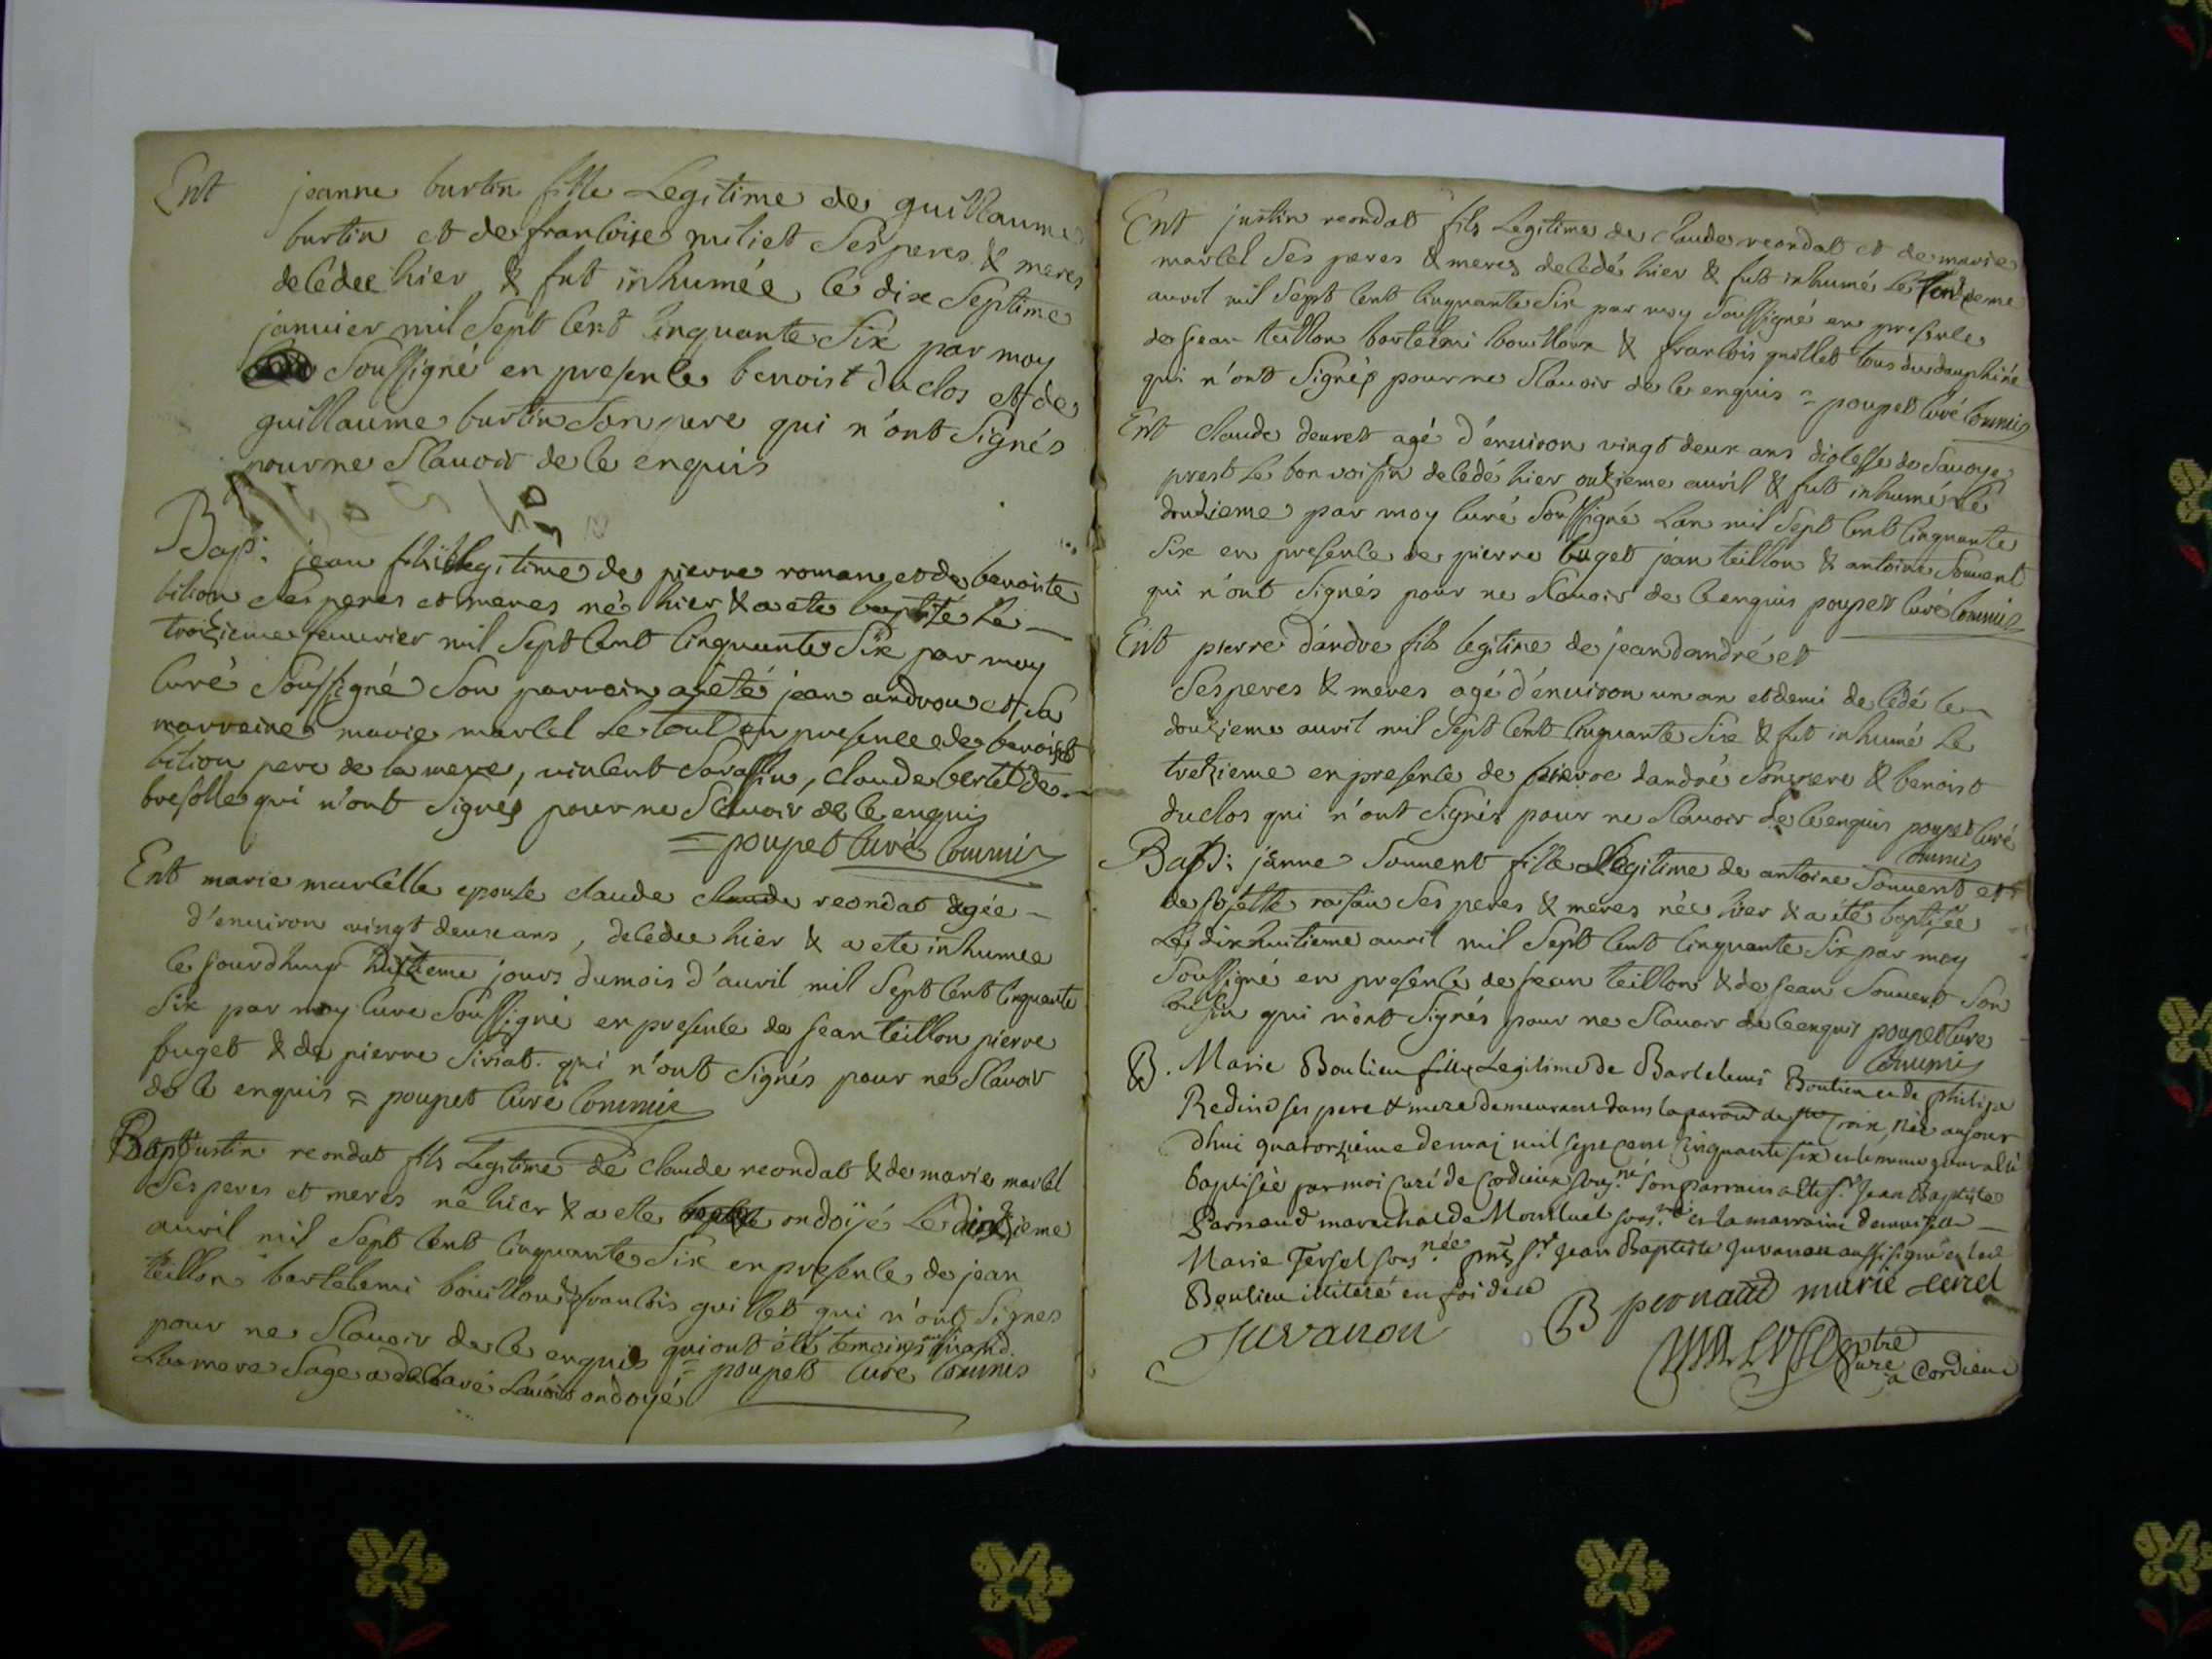 Ent jeanne burtin fille Legitime de guillaume
burtin et de francoise miliet Ses peres & meres
decedee hier & fut inhumée le dix Septime
janvier mil Sept cent cinquante Six par moy
Soussigné en presence benoist duclos et de
guillaume burtin Son pere qui n'ont Signés
pour ne Scavoir de ce enquis
Bap: jean fils legitime de pierre roman et de benoite
bition Ses peres et meres né hier & a ete baptisé le
troizieme feuvrier mil Sept cent cinquante Six par moy
curé Soussigné Son parrein a été jean androu et Sa
marreine marie marcel Le tout en presence de benoist
bition pere de la mere, vincent Sarassin, claude bertet de
bresolle qui n'ont Signés pour ne Scavoir de ce enquis
= poupet curé commis
Ent marie marcelle epouse claude claude reondat agée
d'environ vingt deux ans, decedee hier & a ete inhumee
ce jourdhuy huitieme jours du mois d'avril mil Sept cent cinquante
Six par moy cure Soussigné en presence de jean teillon pierre
buget & de pierre Siriat qui n'ont Signés pour ne Scavoir
de ce enquis = poupet curé commis
Bap justin reondat fils Legitime de claude reondat & de marie marcel
Ses peres et meres né hier & a ete ondoÿé Le dixieme
avril mil Sept cent cinquante Six en presence de jean
teillon bartelemi bouillou & francois guillet qui n'ont Signes
pour ne Scavoir de ce enquis qui ont été temoins quand
La mere Sage a declaré Lavoir ondoyé = poupet curé commis
Ent justin reondat fils Legitime de claude reondat et de marie
marcel Ses peres & meres decedé hier & fut inhumé Le onzieme
avril mil Sept cent cinquante Six par moy Soussigné en presence
de jean teillon bartelemi bouilloux & francois guillet tous du dauphiné
qui n'ont Signés pour ne Scavoir de ce enquis = poupet curé commis
Ent claude deuret agé d'environ vingt deux ans diolesse de Savoye
prest Le bonvoisin decedé hier onzieme avril & fut inhumé Le
douzieme par moy curé Soussigné Lan mil Sept cent cinquante
Six en presence de pierre buget jean teillon & antoine Souvent
qui n'ont Signés pour ne Scavoir de ce enquis poupet curé commis
Ent pierre dandre fils legitime de jean dandré et
Ses peres & meres agé d'environ un an et demi decédé le
douzieme avril mil Sept cent cinquante Six & fut inhumé Le
trezieme en presence de pierre dandré Son pere & benoist
duclos qui n'ont Signés pour ne Scavoir de ce enquis poupet curé
commis
Bap: janne Souvent fille Legitime de antoine Souvent et
de josette rasau Ses peres & meres née hier & a été baptisée
Le dixhuitieme avril mil Sept cent cinquante Six par moy
Soussigné en presence de jean teillon & de jean Souvent Son
cousin qui n'ont Signés pour ne Scavoir de ce enquis poupet cure
commis
B. Marie Boulieu fille Legitime de Bartelemi Boulieu et de philipa
Redino ses pere & mere demeurant dans la paroisse de Ste Croix, née aujour
dhui quatorzieme de mai mil sept cent cinquante six et le meme jour a été
baptisée par moi curé de Cordieux sous.né Son parrain a été Sr Jean Baptiste
Parnaud marechal de Montluel sous.né et la marraine demoiselle
Marie Tersel sous.née pnts Sr Jean Baptiste Juvanon aussi signé et led
Boulieu illiteré en foi de ce
Juvanon
B pernaud marie tersel
ptre
curé
a Cordieux